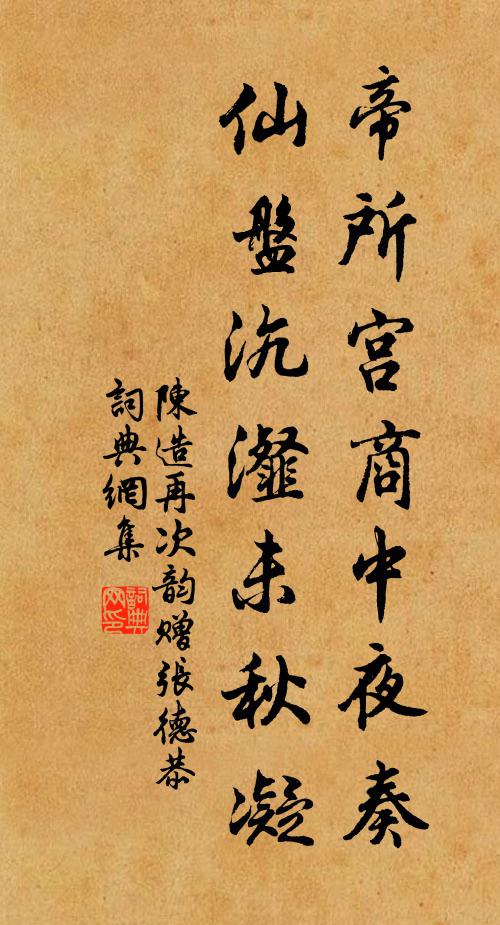 帝所宫商中夜奏
仙盤沆瀣未秋凝
陳造再次韵贈張德恭
詞典網集
詞典網印